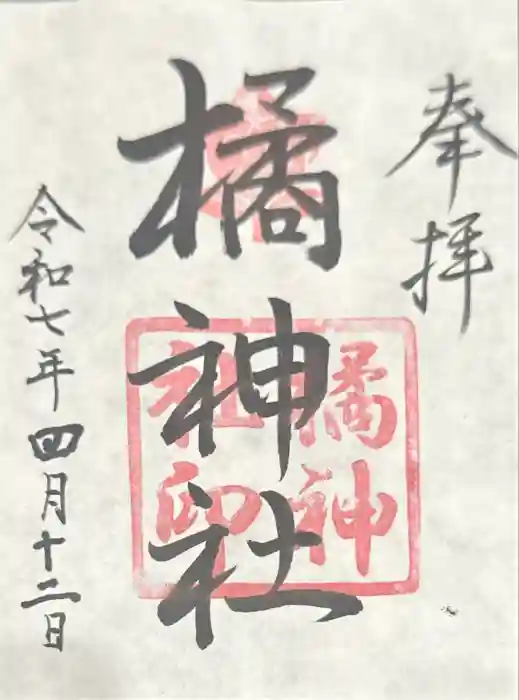 奉拝
橘神社
橘神
社印
令和七年四月十二日